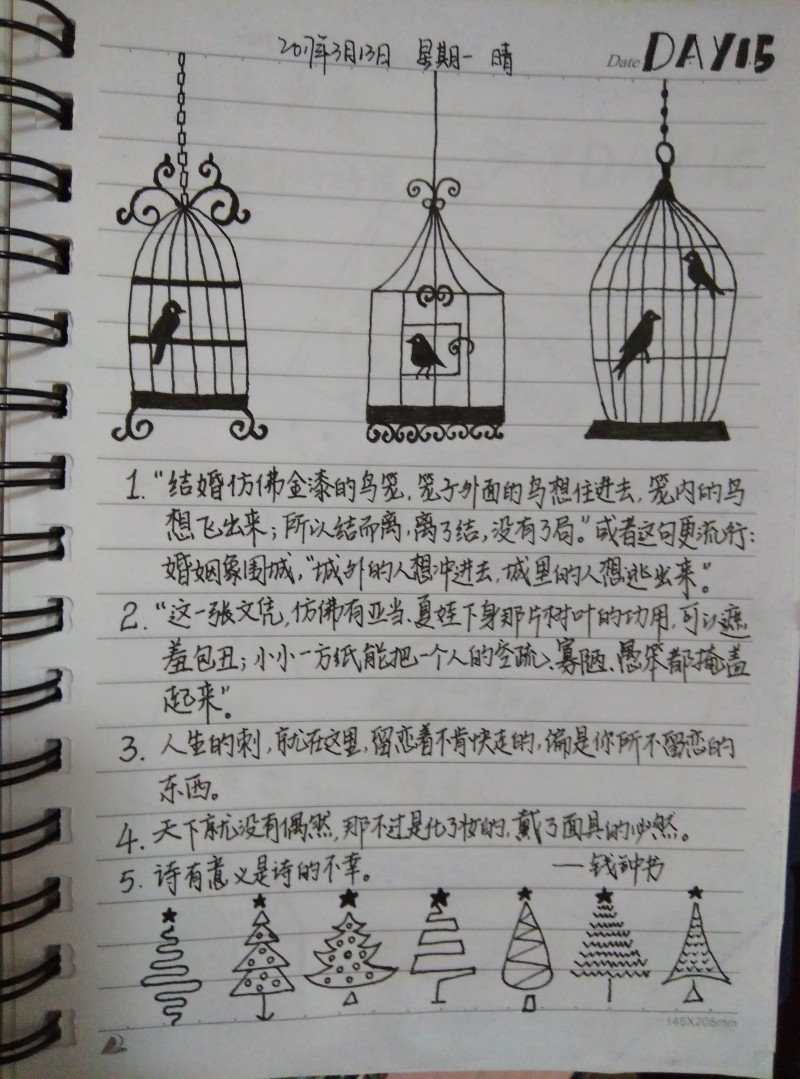 2017年3月13日 星期一 晴
Date DAY15
1. “结婚仿佛金漆的鸟笼，笼子外面的鸟想住进去，笼内的鸟
想飞出来；所以结而离，离了结，没有了局。”或者这句更流行：
婚姻象围城，“城外的人想冲进去，城里的人想逃出来”。
2. “这一张文凭，仿佛有亚当、夏娃下身那片树叶的功用，可以遮
羞包丑；小小一方纸能把一个人的空疏、寡陋、愚笨都掩盖
起来”。
3. 人生的刺，就在这里，留恋着不肯快走的，偏是你所不留恋的
东西。
4. 天下就没有偶然，那不过是化了妆的，戴了面具的必然。
5. 诗有意义是诗的不幸。 —钱钟书
145X205mm